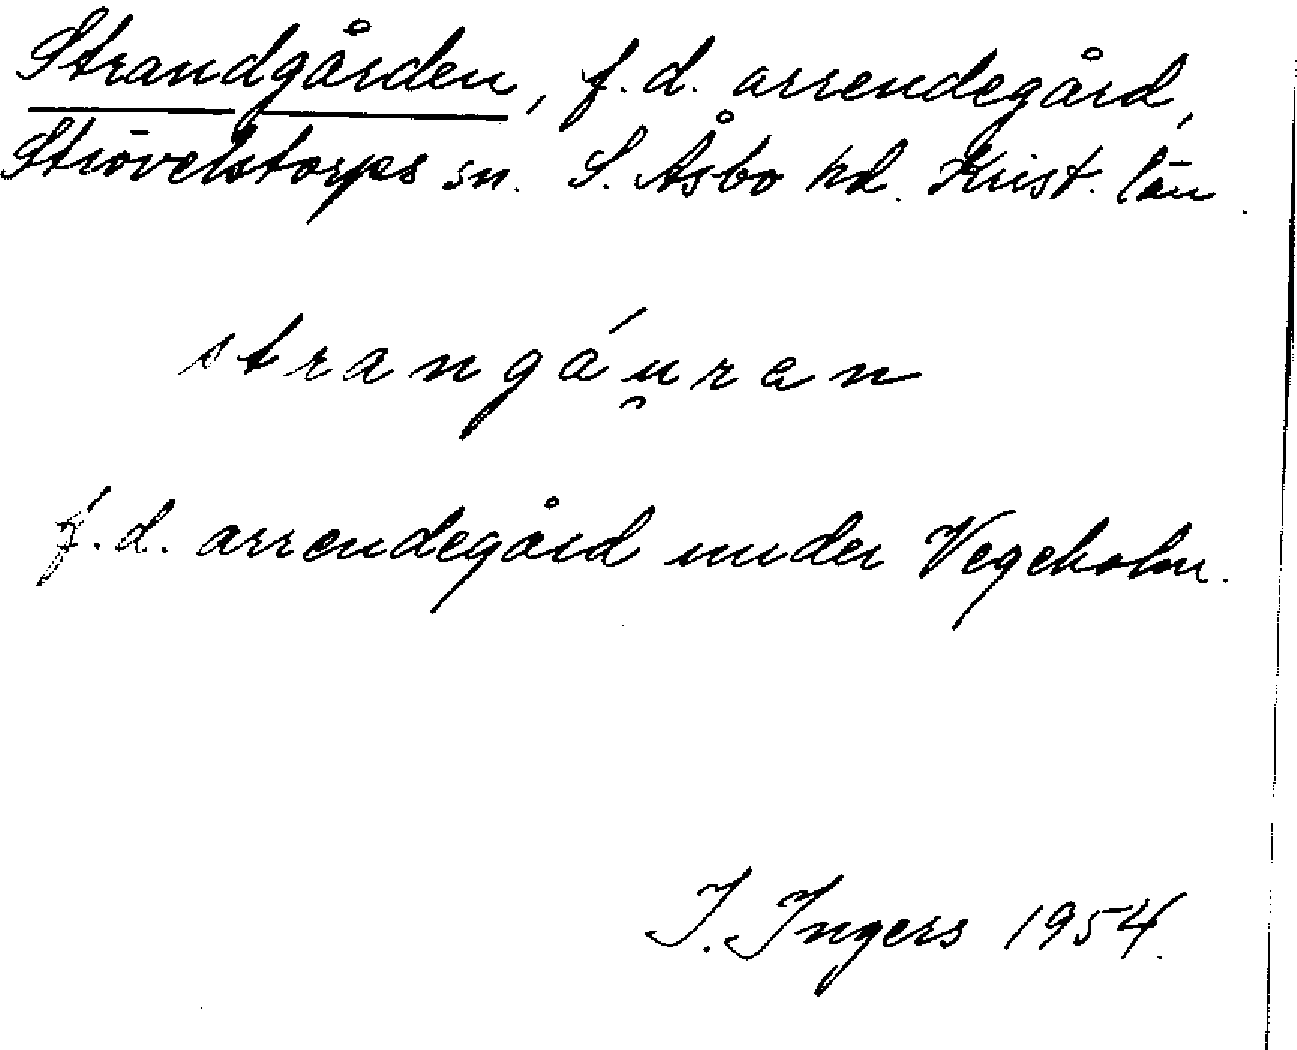 Strandgården, f.d. arrendegård,
Strövelstorps sn. S. Åsbo hd. Krist. län.
strangáu̯ran
f.d. arrendegård under Vegeholm.
I. Ingers 1954.